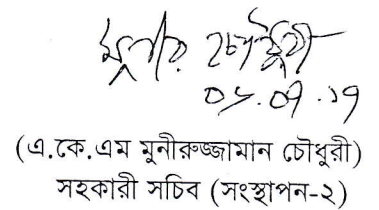 মুনীর চৌধুরী
০৮.০৭.১৭
(এ.কে.এম মুনীরুজ্জামান চৌধুরী)
সহকারী সচিব (সংস্থাপন-২)